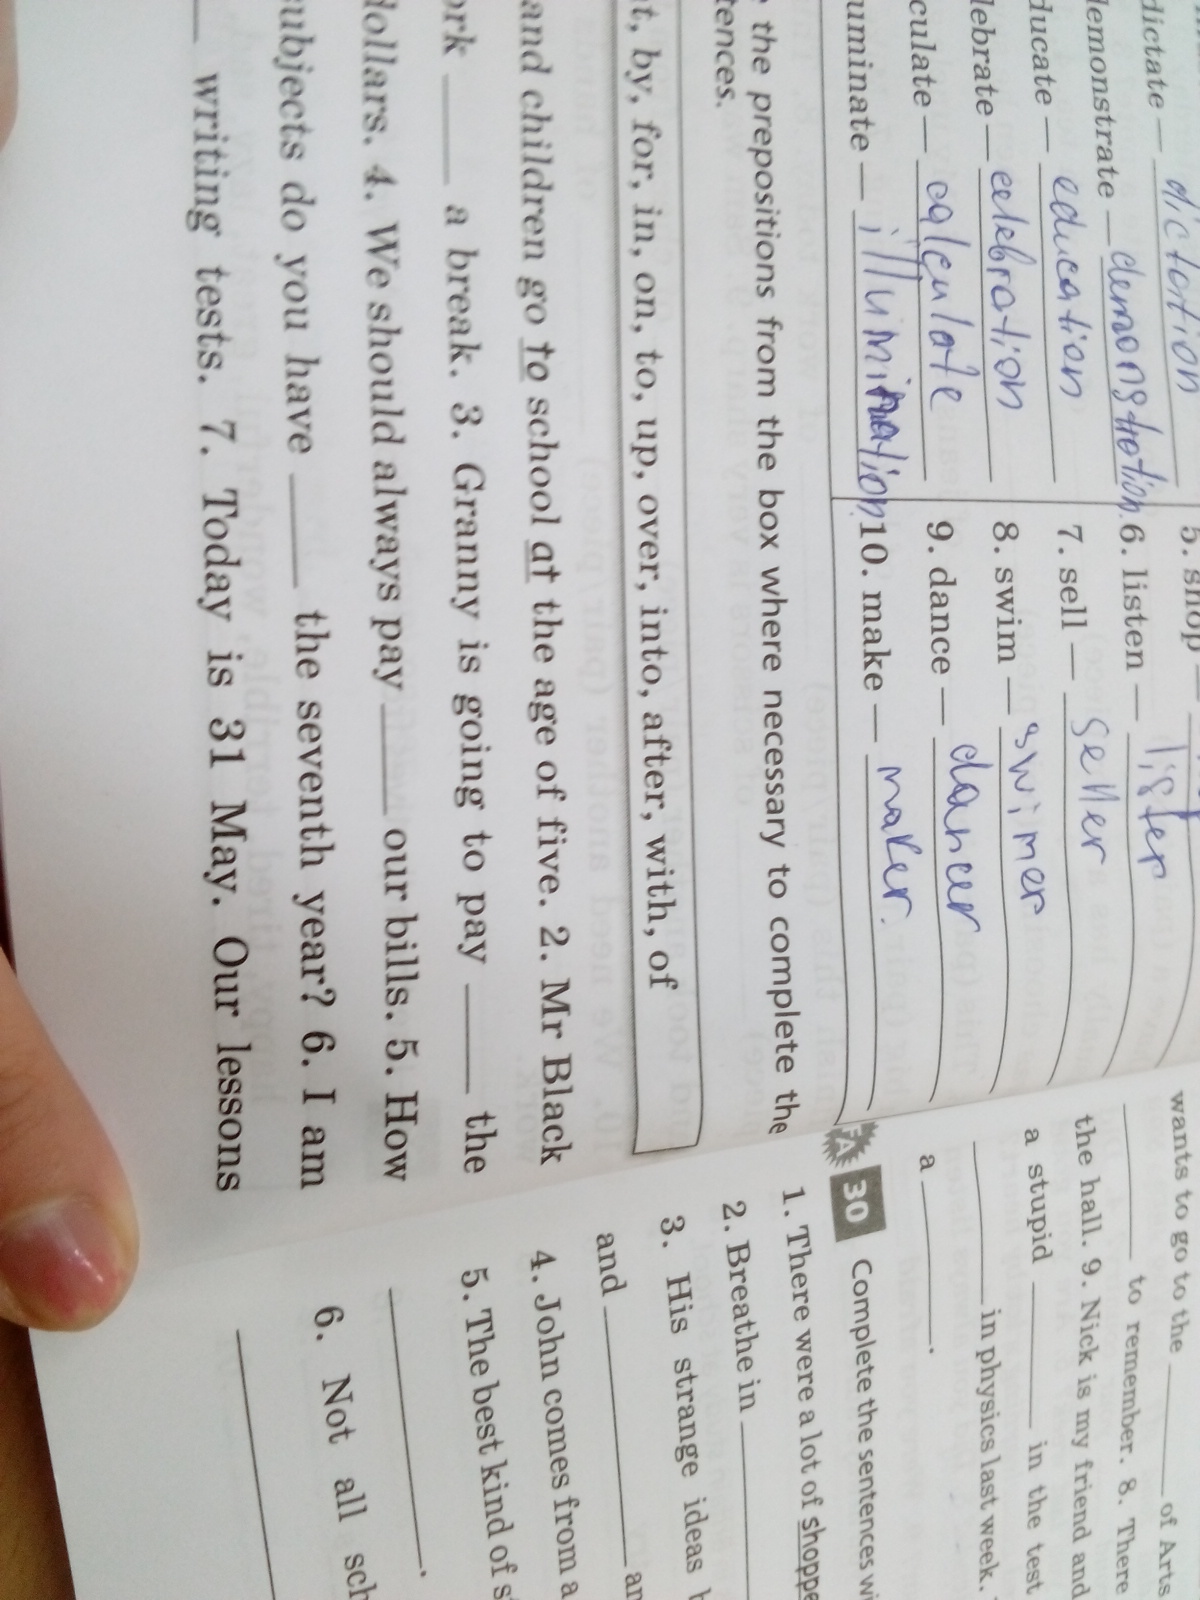 dictate — dictation
demonstrate — demonstration
ducate — education
lebrate — celebration
culate — calculate
uminate — illumination
5. shop
6. listen — lister
7. sell — seller
8. swim — swimer
9. dance — dancer
10. make — maker.
the prepositions from the box where necessary to complete the
tences.
t, by, for, in, on, to, up, over, into, after, with, of
and children go to school at the age of five. 2. Mr Black
ork ____ a break. 3. Granny is going to pay ____ the
dollars. 4. We should always pay ____ our bills. 5. How
subjects do you have ____ the seventh year? 6. I am
____ writing tests. 7. Today is 31 May. Our lessons
wants to go to the ____ of Arts
____ to remember. 8. There
the hall. 9. Nick is my friend and
a stupid ____ in the test
____ in physics last week.
a ____.
30 Complete the sentences wi
1. There were a lot of shoppe
2. Breathe in ____
3. His strange ideas
and ____ an
4. John comes from a
5. The best kind of s
____.
6. Not all sch
____